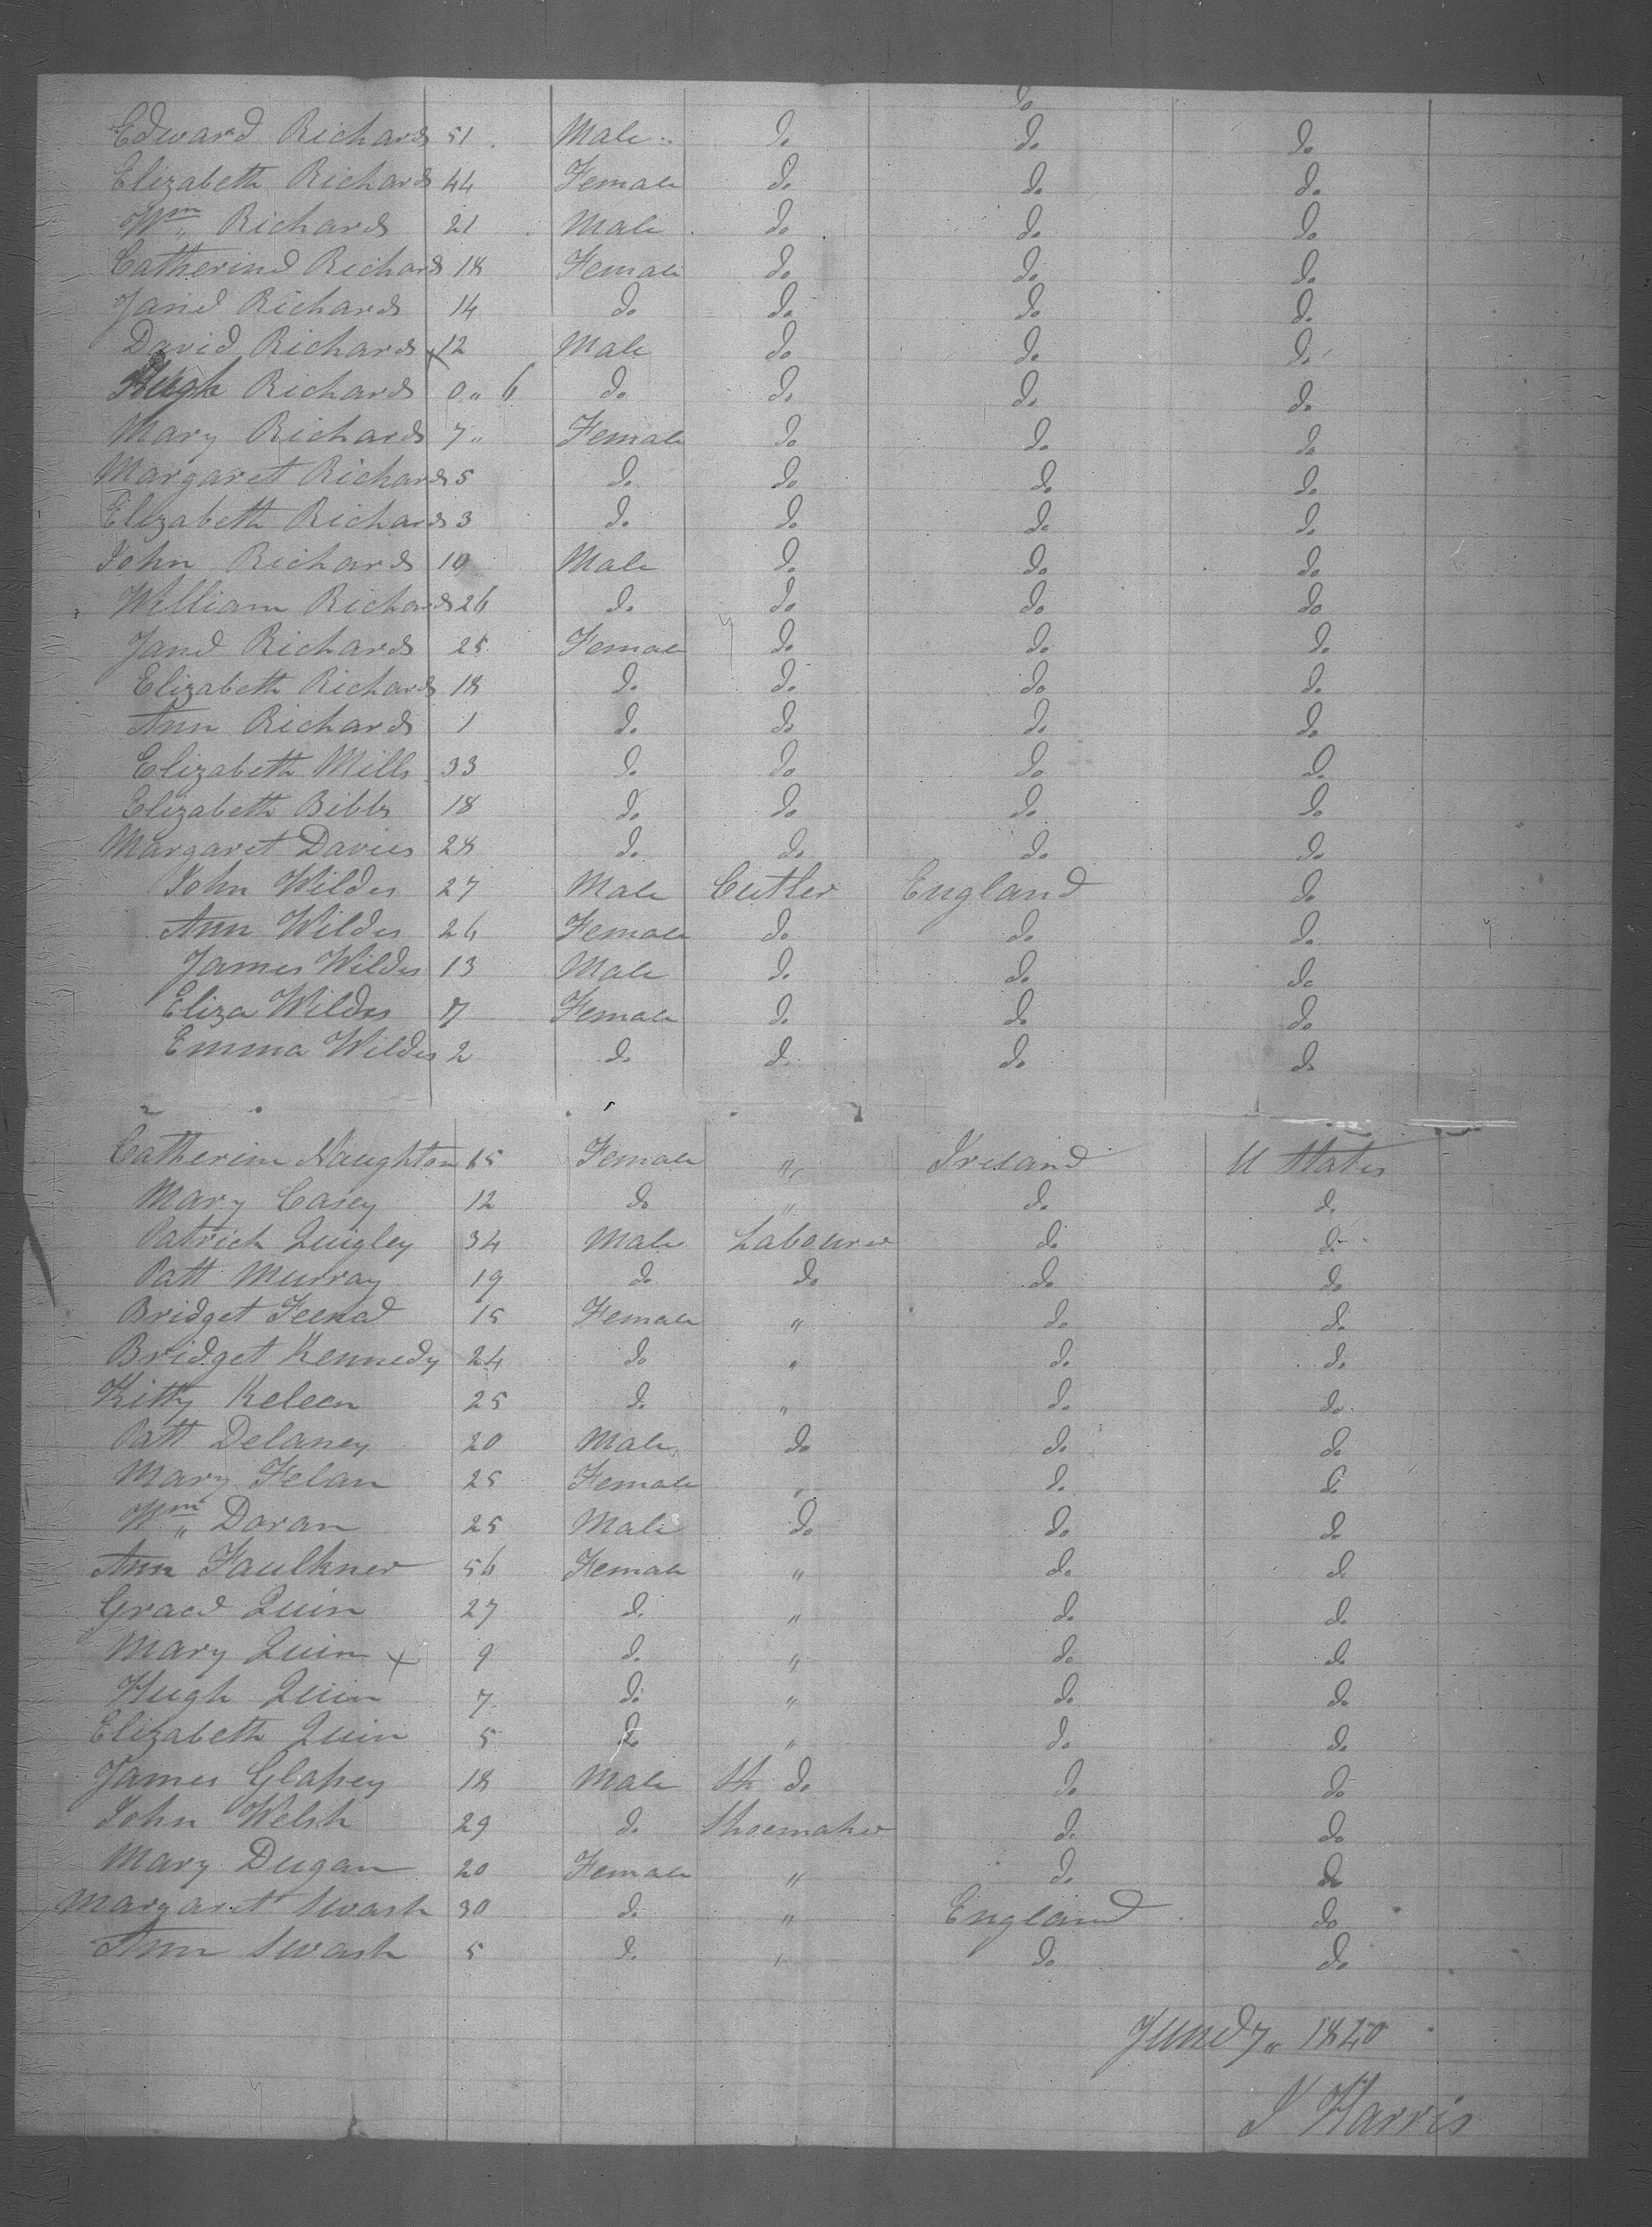 do
Edward Richards 51 Male do do do
Elizabeth Richards 44 Female do do do
Wm Richards 21 Male do do do
Catherine Richards 18 Female do do do
Jane Richards 14 do do do do
David Richards x 12 Male do do do
Hugh Richards 0 " 6 do do do do
Mary Richards 7 " Female do do do
Margaret Richards 5 do do do do
Elizabeth Richards 3 do do do do
John Richards 10 Male do do do
William Richards 26 do do do do
Jane Richards 25 Female do do do
Elizabeth Richards 18 do do do do
Ann Richards 1 do do do do
Elizabeth Mills 33 do do do do
Elizabeth Bibbs 18 do do do do
Margaret Davies 28 do do do do
John Wildes 27 Male Cutler England do
Ann Wildes 26 Female do do do
James Wildes 13 Male do do do
Eliza Wildes 7 Female do do do
Emma Wildes 2 do do do do
Catherine Naughton 15 Female " Ireland U States
Mary Casey 12 do " do do
Patrick Quigley 34 Male Labourer do do
Patt Murray 19 do do do do
Bridget 15 Female " do do
Bridget Kennedy 24 do " do do
Kitty Keleen 25 do " do do
Patt Delaney 20 Male do do do
Mary Felan 25 Female " do do
Wm " Doran 25 Male do do do
Ann Faulkner 56 Female " do do
Grace Quin 27 do " do do
Mary Quin x 9 do " do do
Hugh Quin 7 do " do do
Elizabeth Quin 5 do " do do
James Glassey 18 Male do do do
John Welsh 29 do Shoemaker do do
Mary Dugan 20 Female " do do
Margaret Swash 30 do " England do
Ann Swash 5 do " do do
June 7 " 1840
J Harris